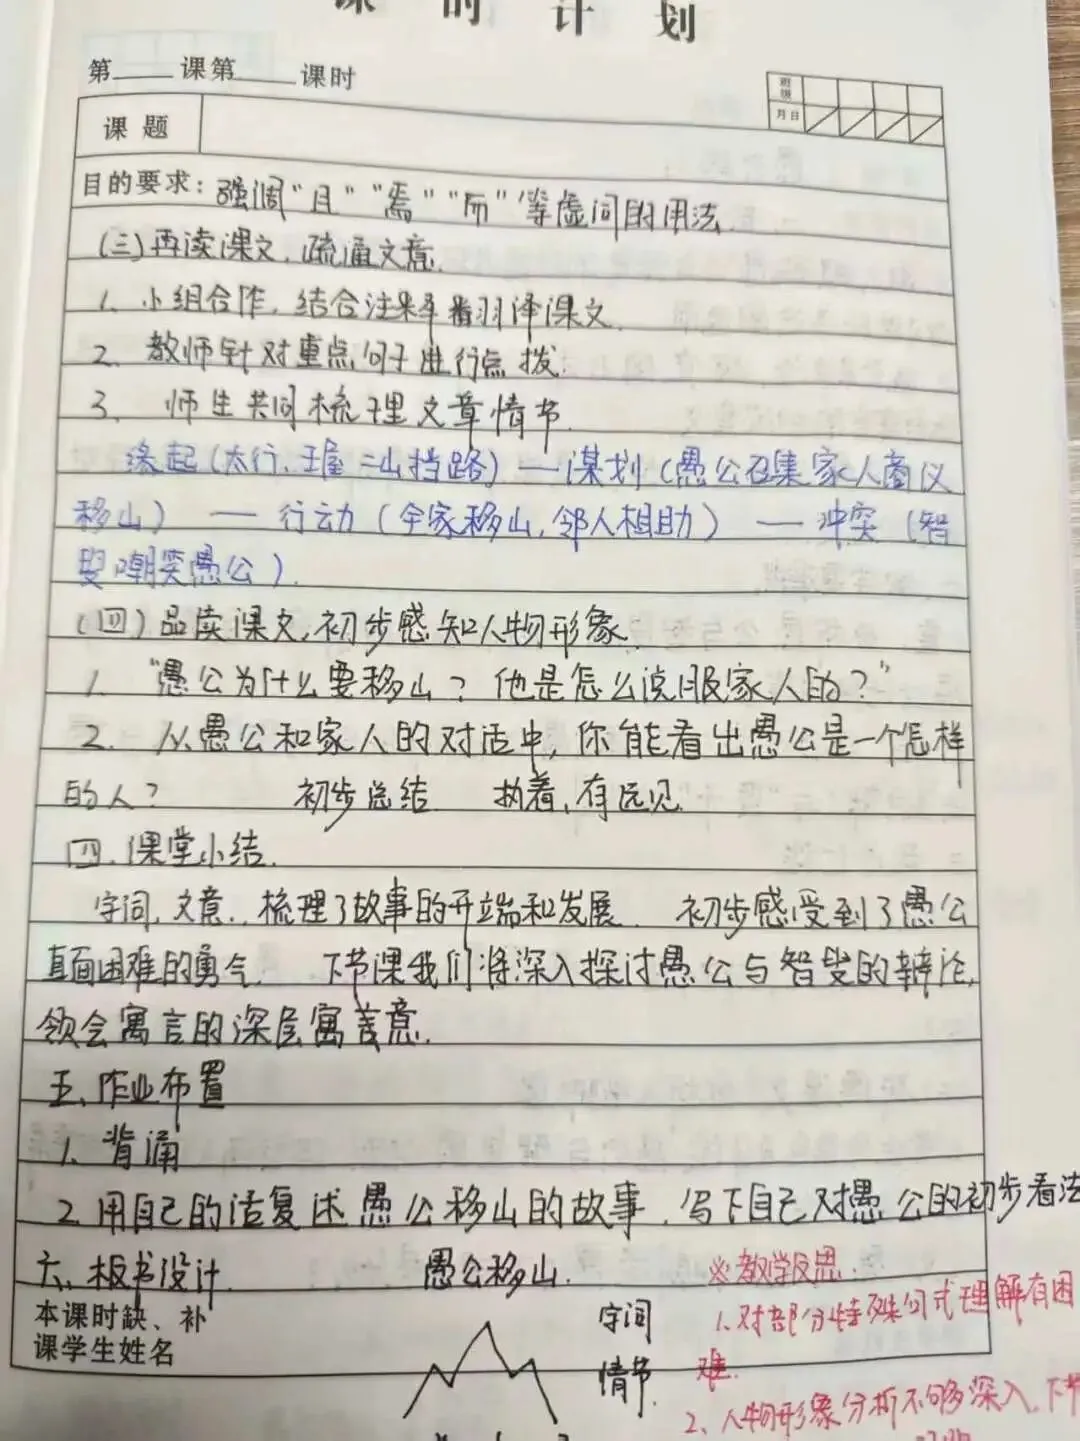 课时计划
第 课第 课时
班级
月日
课题
目的要求：强调“且”“焉”“而”等虚词的用法
(三)再读课文，疏通文意.
1. 小组合作，结合注释翻译课文.
2. 教师针对重点句子进行点拨.
3. 师生共同梳理文章情节.
缘起(太行、王屋二山挡路)—谋划(愚公召集家人商议
移山) — 行动(全家移山,邻人相助) — 冲突(智
叟嘲笑愚公).
(四)品读课文,初步感知人物形象.
1. “愚公为什么要移山？他是怎么说服家人的？”
2. 从愚公和家人的对话中,你能看出愚公是一个怎样
的人？ 初步总结 执着,有远见
四.课堂小结.
字词,文意.,梳理了故事的开端和发展. 初步感受到了愚公
直面困难的勇气. 下节课我们将深入探讨愚公与智叟的辩论,
领会寓言的深层寓意.
五、作业布置
1. 背诵
2. 用自己的话复述愚公移山的故事.写下自己对愚公的初步看法
六、板书设计. 愚公移山. ※教学反思.
本课时缺、补
课学生姓名
字词
情节.
1.对部分特殊句式理解有困
难.
2、人物形象分析不够深入,下节